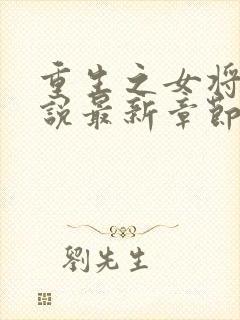 重生之女将
說最新章節
劉先生